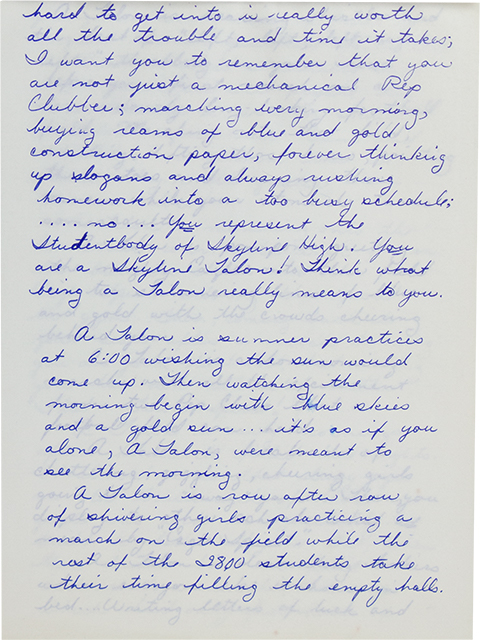 hard to get into is really worth
all the trouble and time it takes;
I want you to remember that you
are not just a mechanical Pep
Clubber; marching every morning,
buying reams of blue and gold
construction paper, forever thinking
up slogans and always rushing
homework into a too busy schedule;
.... no ... You represent the
Studentbody of Skyline High. You
are a Skyline Talon! Think what
being a Talon really means to you.
A Talon is summer practices
at 6:00 wishing the sun would
come up. Then watching the
morning begin with blue skies
and a gold sun ... it's as if you
alone, A Talon, were meant to
see the morning.
A Talon is row after row
of shivering girls practicing a
march on the field while the
rest of the 2800 students take
their time filling the empty halls.